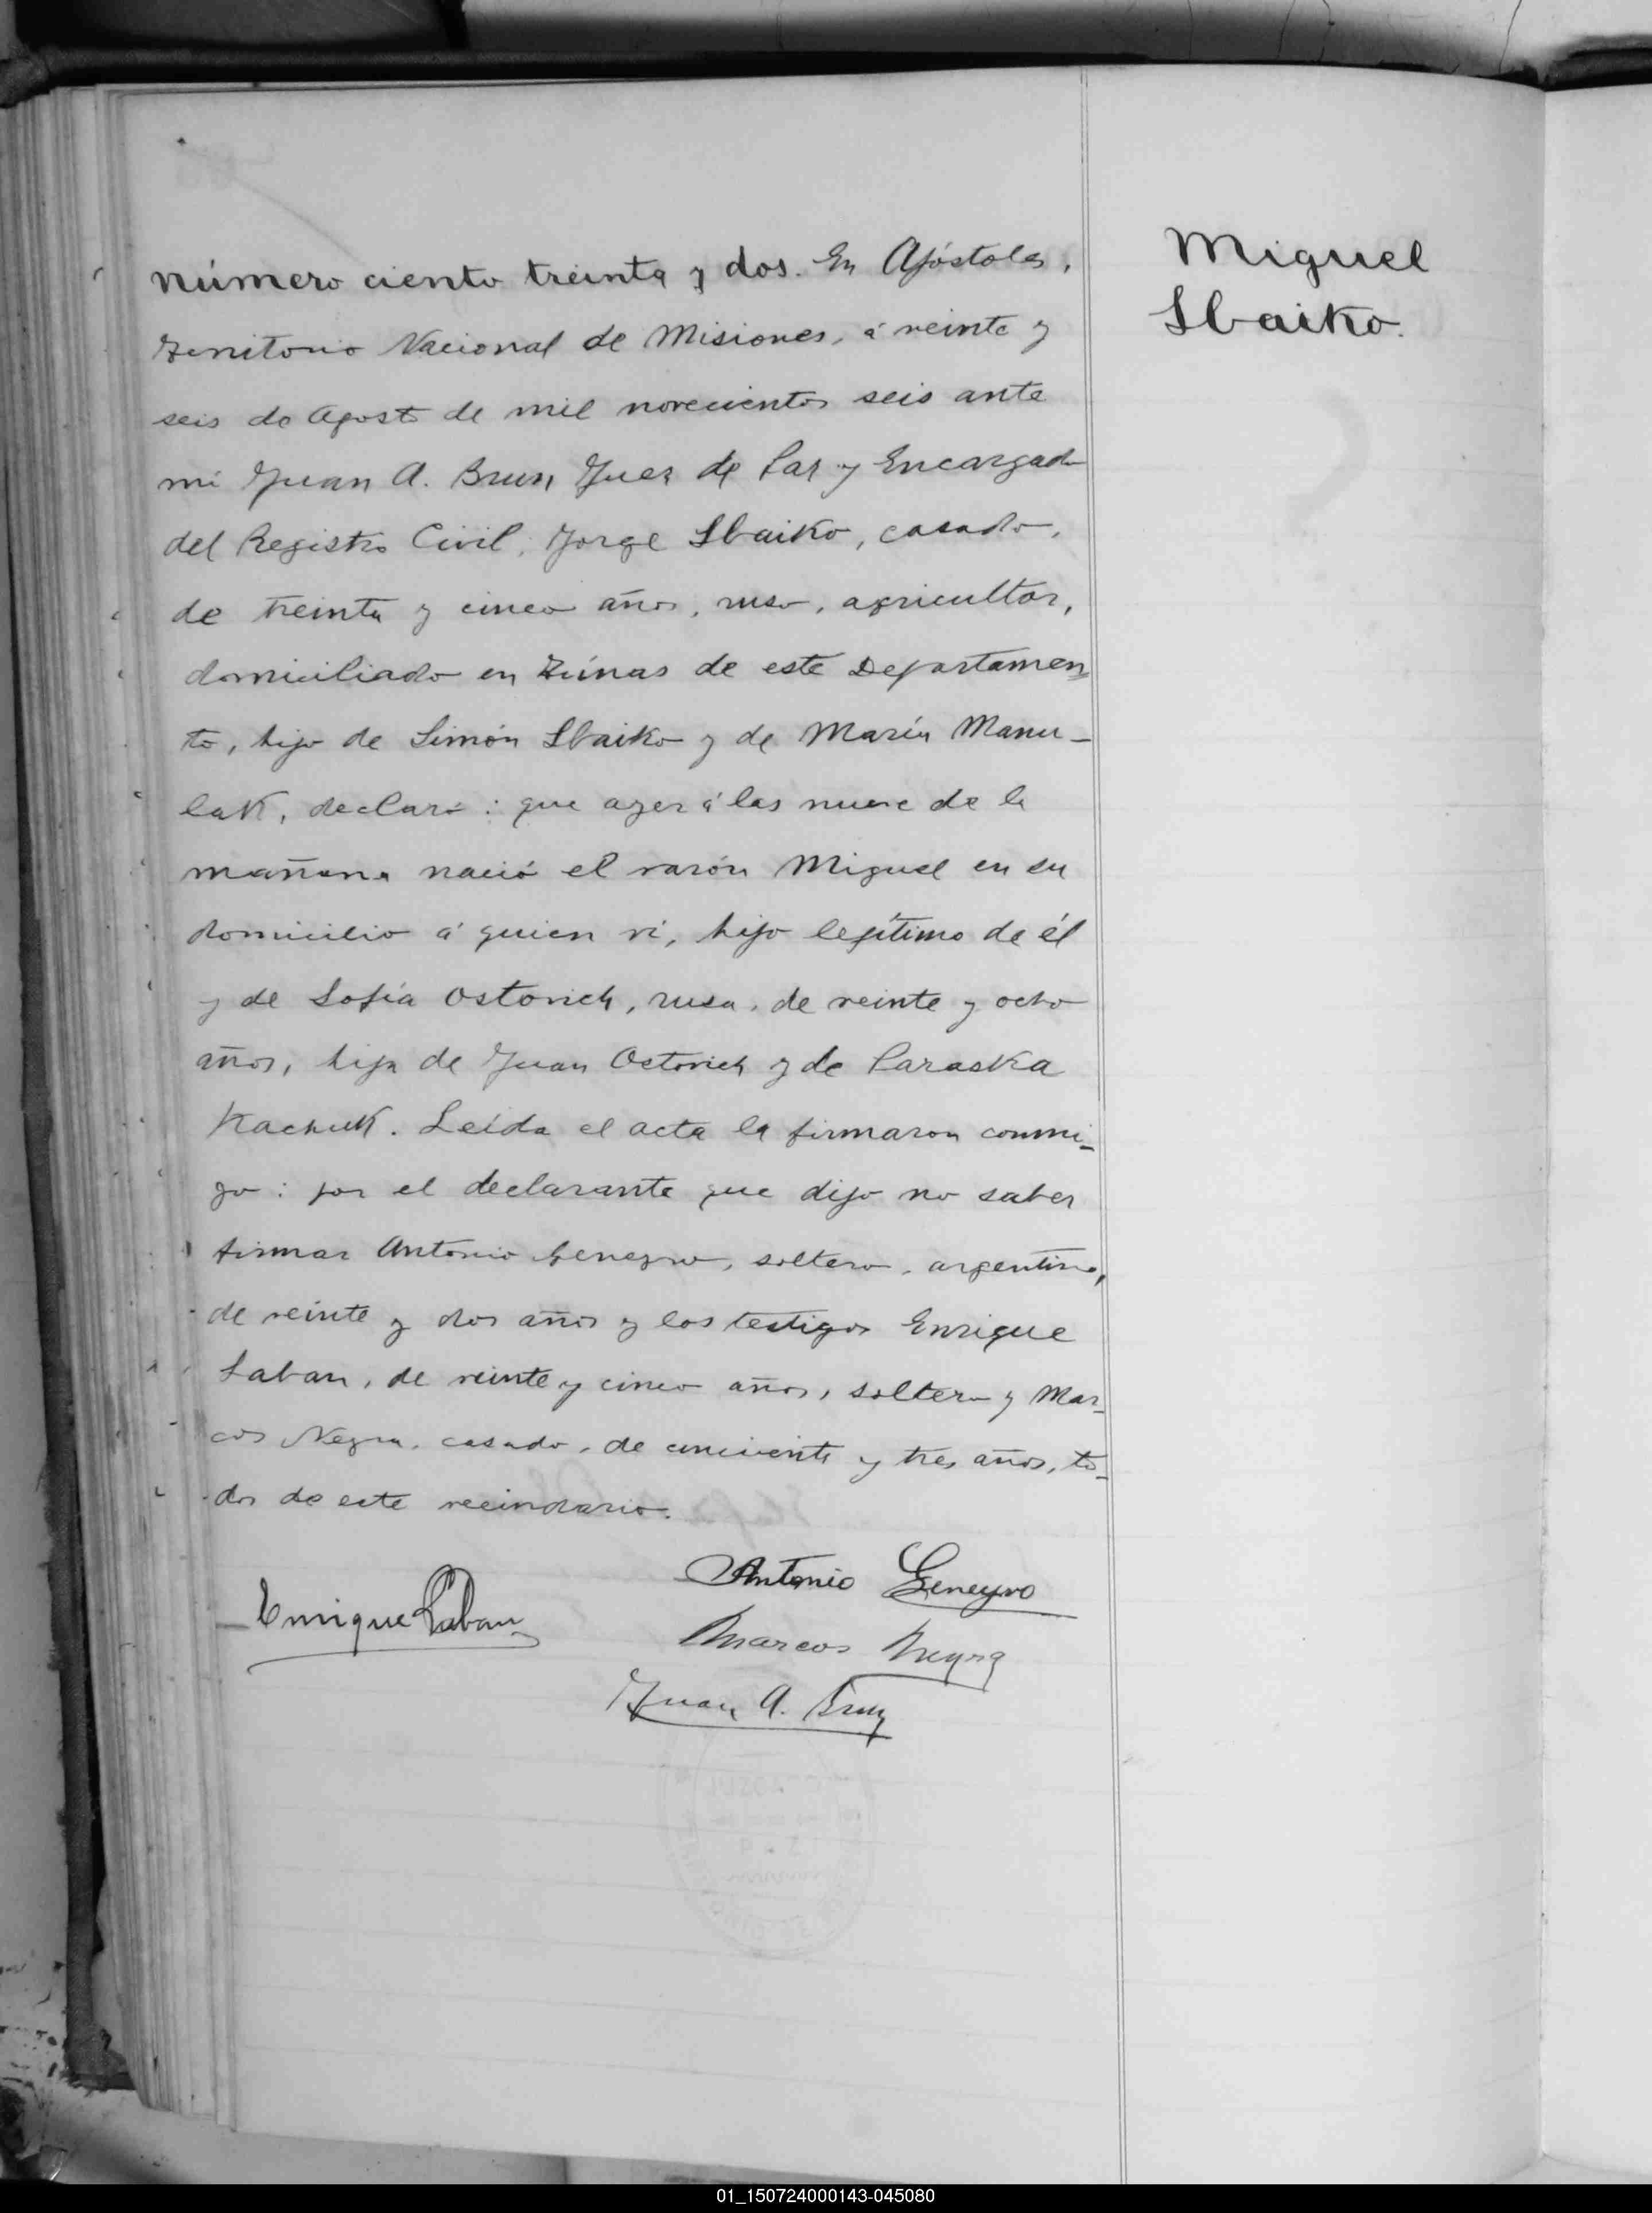 Número ciento treinta y dos. En Apóstoles,
Territorio Nacional de Misiones, á veinte y
seis de Agosto de mil novecientos seis ante
mi Juan A. Brun Juez de Paz y Encargado
del Registro Civil, Jorge Sbaiko, casado,
de treinta y cinco años, ruso, agricultor,
domiciliado en Túnas de este Departamen
to, hijo de Simón Sbaiko y de María Manu-
lak, declaró: que ayer á las nueve de la
mañana nació el varón Miguel en su
domicilio á quien ví, hijo legítimo de él
y de Sofía Ostovich, rusa, de veinte y ocho
años, hija de Juan Ostovich y de Paraska
Kachuk. Leída el acta la firmaron conmi-
go: por el declarante que dijo no saber
firmar Antonio Geneyro, soltero, argentino,
de veinte y dos años y los testigos Enrique
Laban, de veinte y cinco años, soltero y Mar-
cos Neyra, casado, de cincuenta y tres años, to-
dos de este vecindario.
Antonio Geneyro
Enrique Laban
Marcos Neyra
Juan A. Brun
Miguel
Sbaiko.
01_150724000143-045080